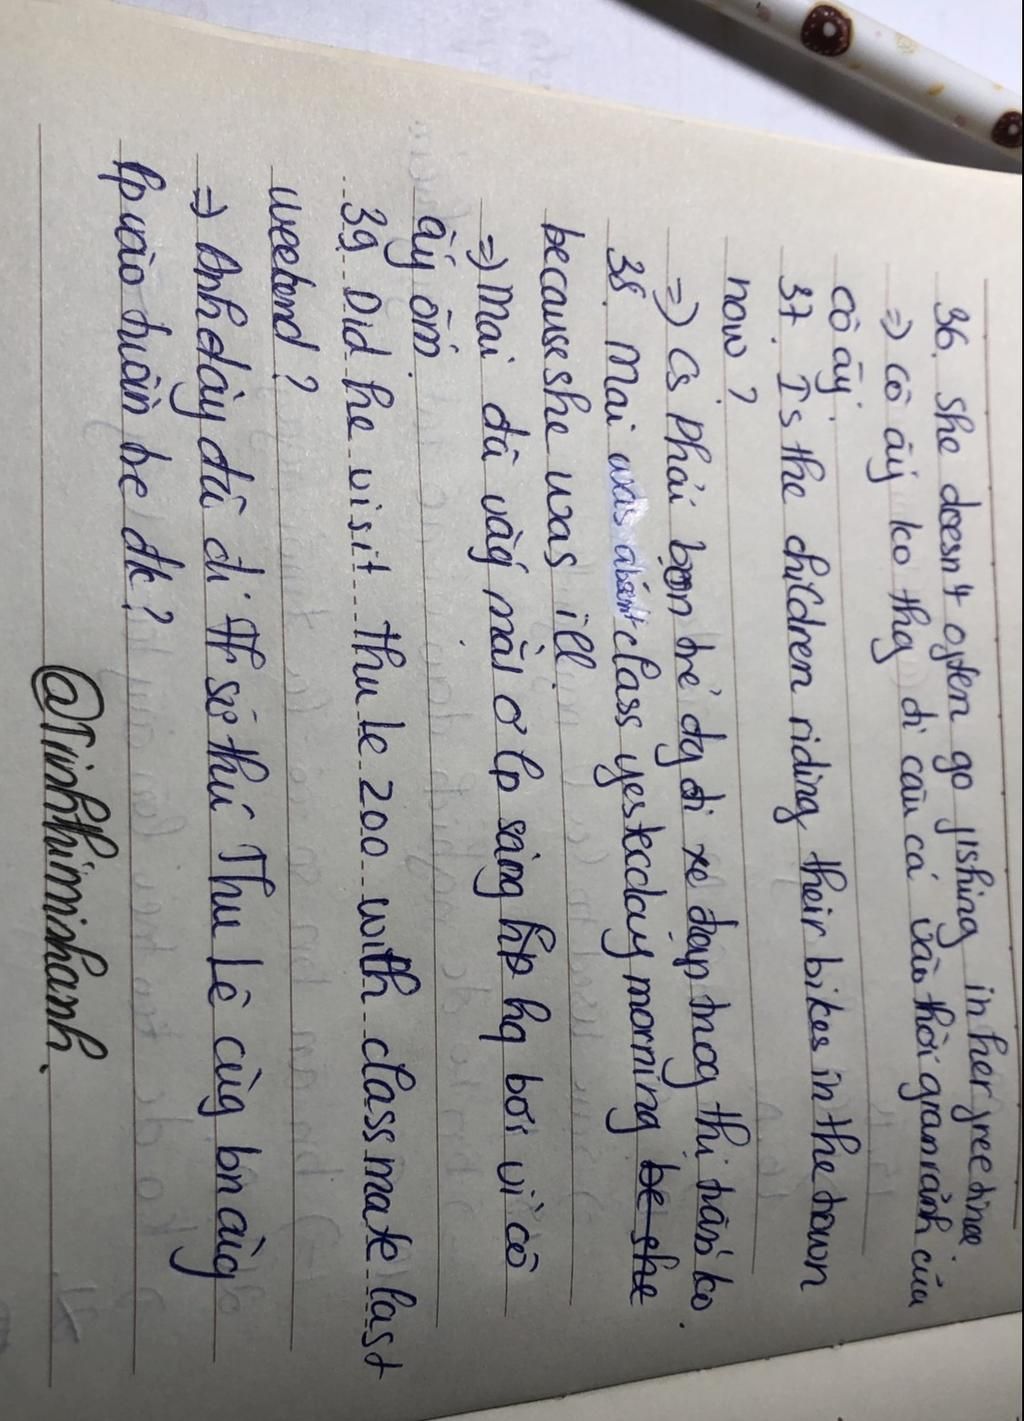 36. she doesn't often go fishing in her free time.
=) cô ấy ko thg đi câu cá vào thời gian rảnh của
cô ấy.
37. Is the children riding their bikes in the town
now?
=) Cs phải bọn trẻ đg đi xe đạp trog thị trấn ko.
38. Mai was absent class yesterday morning be she
because she was ill.
=) Mai đã vắg mặt ở lp ság hp hq bởi vì cô
ấy ốm.
39. Did he visit thu le zoo with classmate last
weekend?
=) Anh đấy đã đi sở thú Thu Lê cùg bn cùg
lp vào tuần tr đk?
@Trinhthiminhanh.